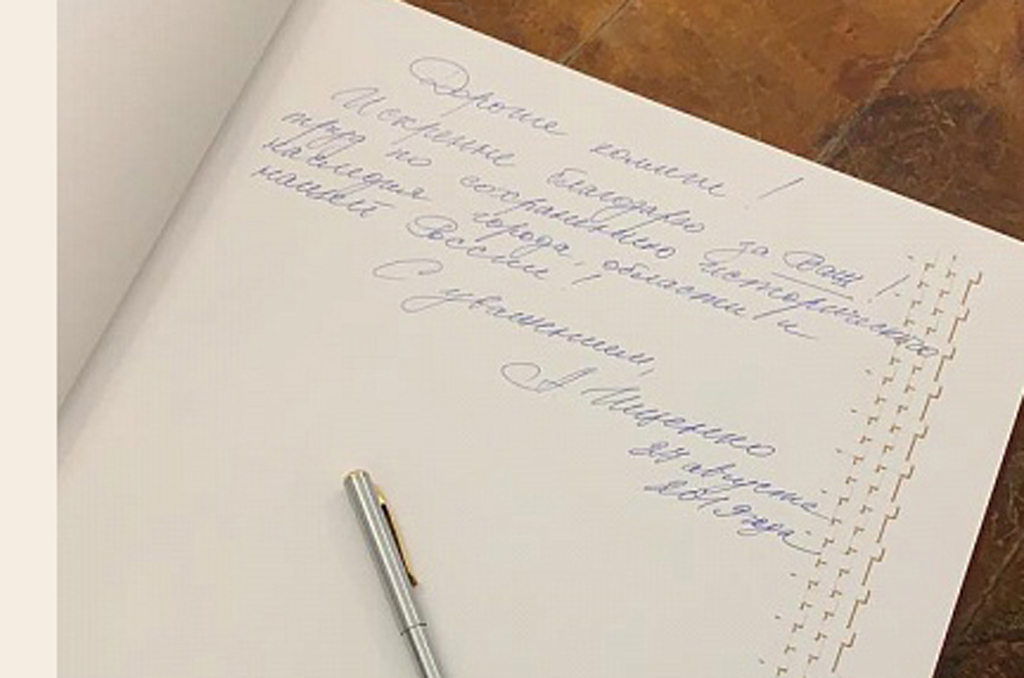 Дорогие коллеги!
Искренне благодарю за Ваш
труд по сохранению исторического
наследия города, области и
нашей России!
С уважением,
А Ищенко
27 августа
2019 года.